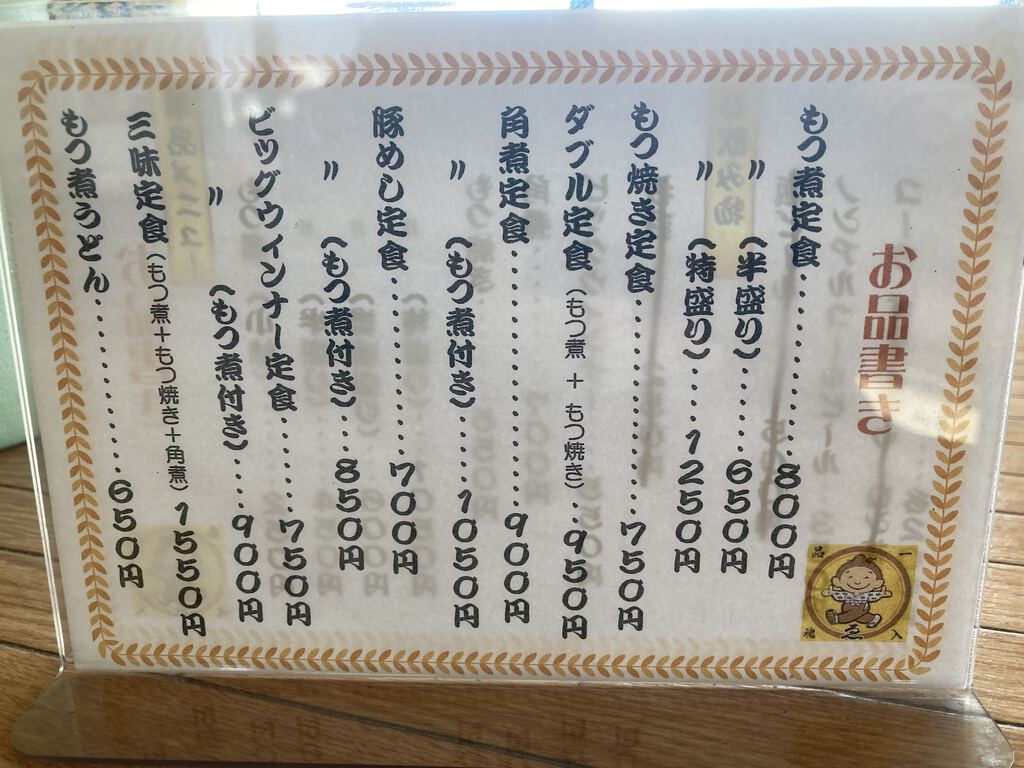 お品書き
もつ煮定食..................800円
〃 (半盛り)........650円
〃 (特盛り)......1250円
もつ焼き定食..................750円
ダブル定食(もつ煮 + もつ焼き)...950円
角煮定食........................900円
〃 (もつ煮付き).......1050円
豚めし定食................700円
〃 (もつ煮付き)...850円
ビッグウィンナー定食........750円
〃 (もつ煮付き)...900円
三味定食(もつ煮+もつ焼き+角煮)1550円
もつ煮うどん................650円
一品入魂